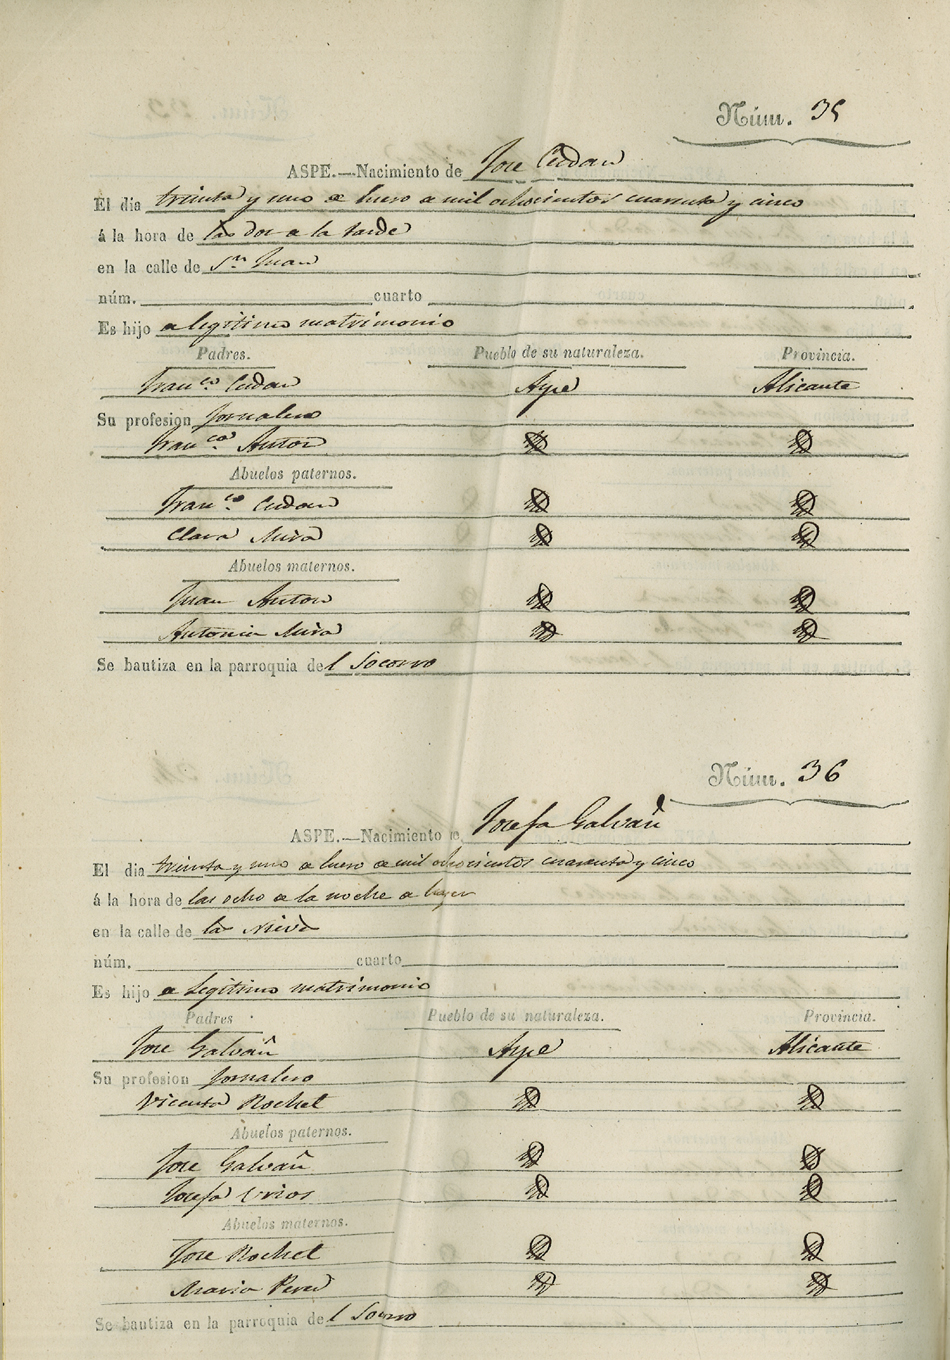 Núm. 35
ASPE.—Nacimiento de Jose Cerdan
El dia treinta y uno de Enero de mil ochocientos cuarenta y cinco
á la hora de las dos de la tarde
en la calle de Sn Juan
núm. cuarto
Es hijo de legitimo matrimonio
Padres. Pueblo de su naturaleza. Provincia.
Franco Cerdan Aspe Alicante
Su profesion Jornalero
Franca Anton
Abuelos paternos.
Franco Cerdan
Clara Mira
Abuelos maternos.
Juan Anton
Antonia Mira
Se bautiza en la parroquia del Socorro
Núm. 36
ASPE.—Nacimiento de Josefa Galvañ
El dia treinta y uno de Enero de mil ochocientos cuarenta y cinco
á la hora de las ocho de la noche de hayer
en la calle de la
núm. cuarto
Es hijo de Legitimo matrimonio
Padres Pueblo de su naturaleza. Provincia.
Jose Galvañ Aspe Alicante
Su profesion Jornalero
Vicenta Bochel
Abuelos paternos.
Jose Galvañ
Josefa Urios
Abuelos maternos.
Jose Bochel
Maria Perez
Se bautiza en la parroquia del Socorro